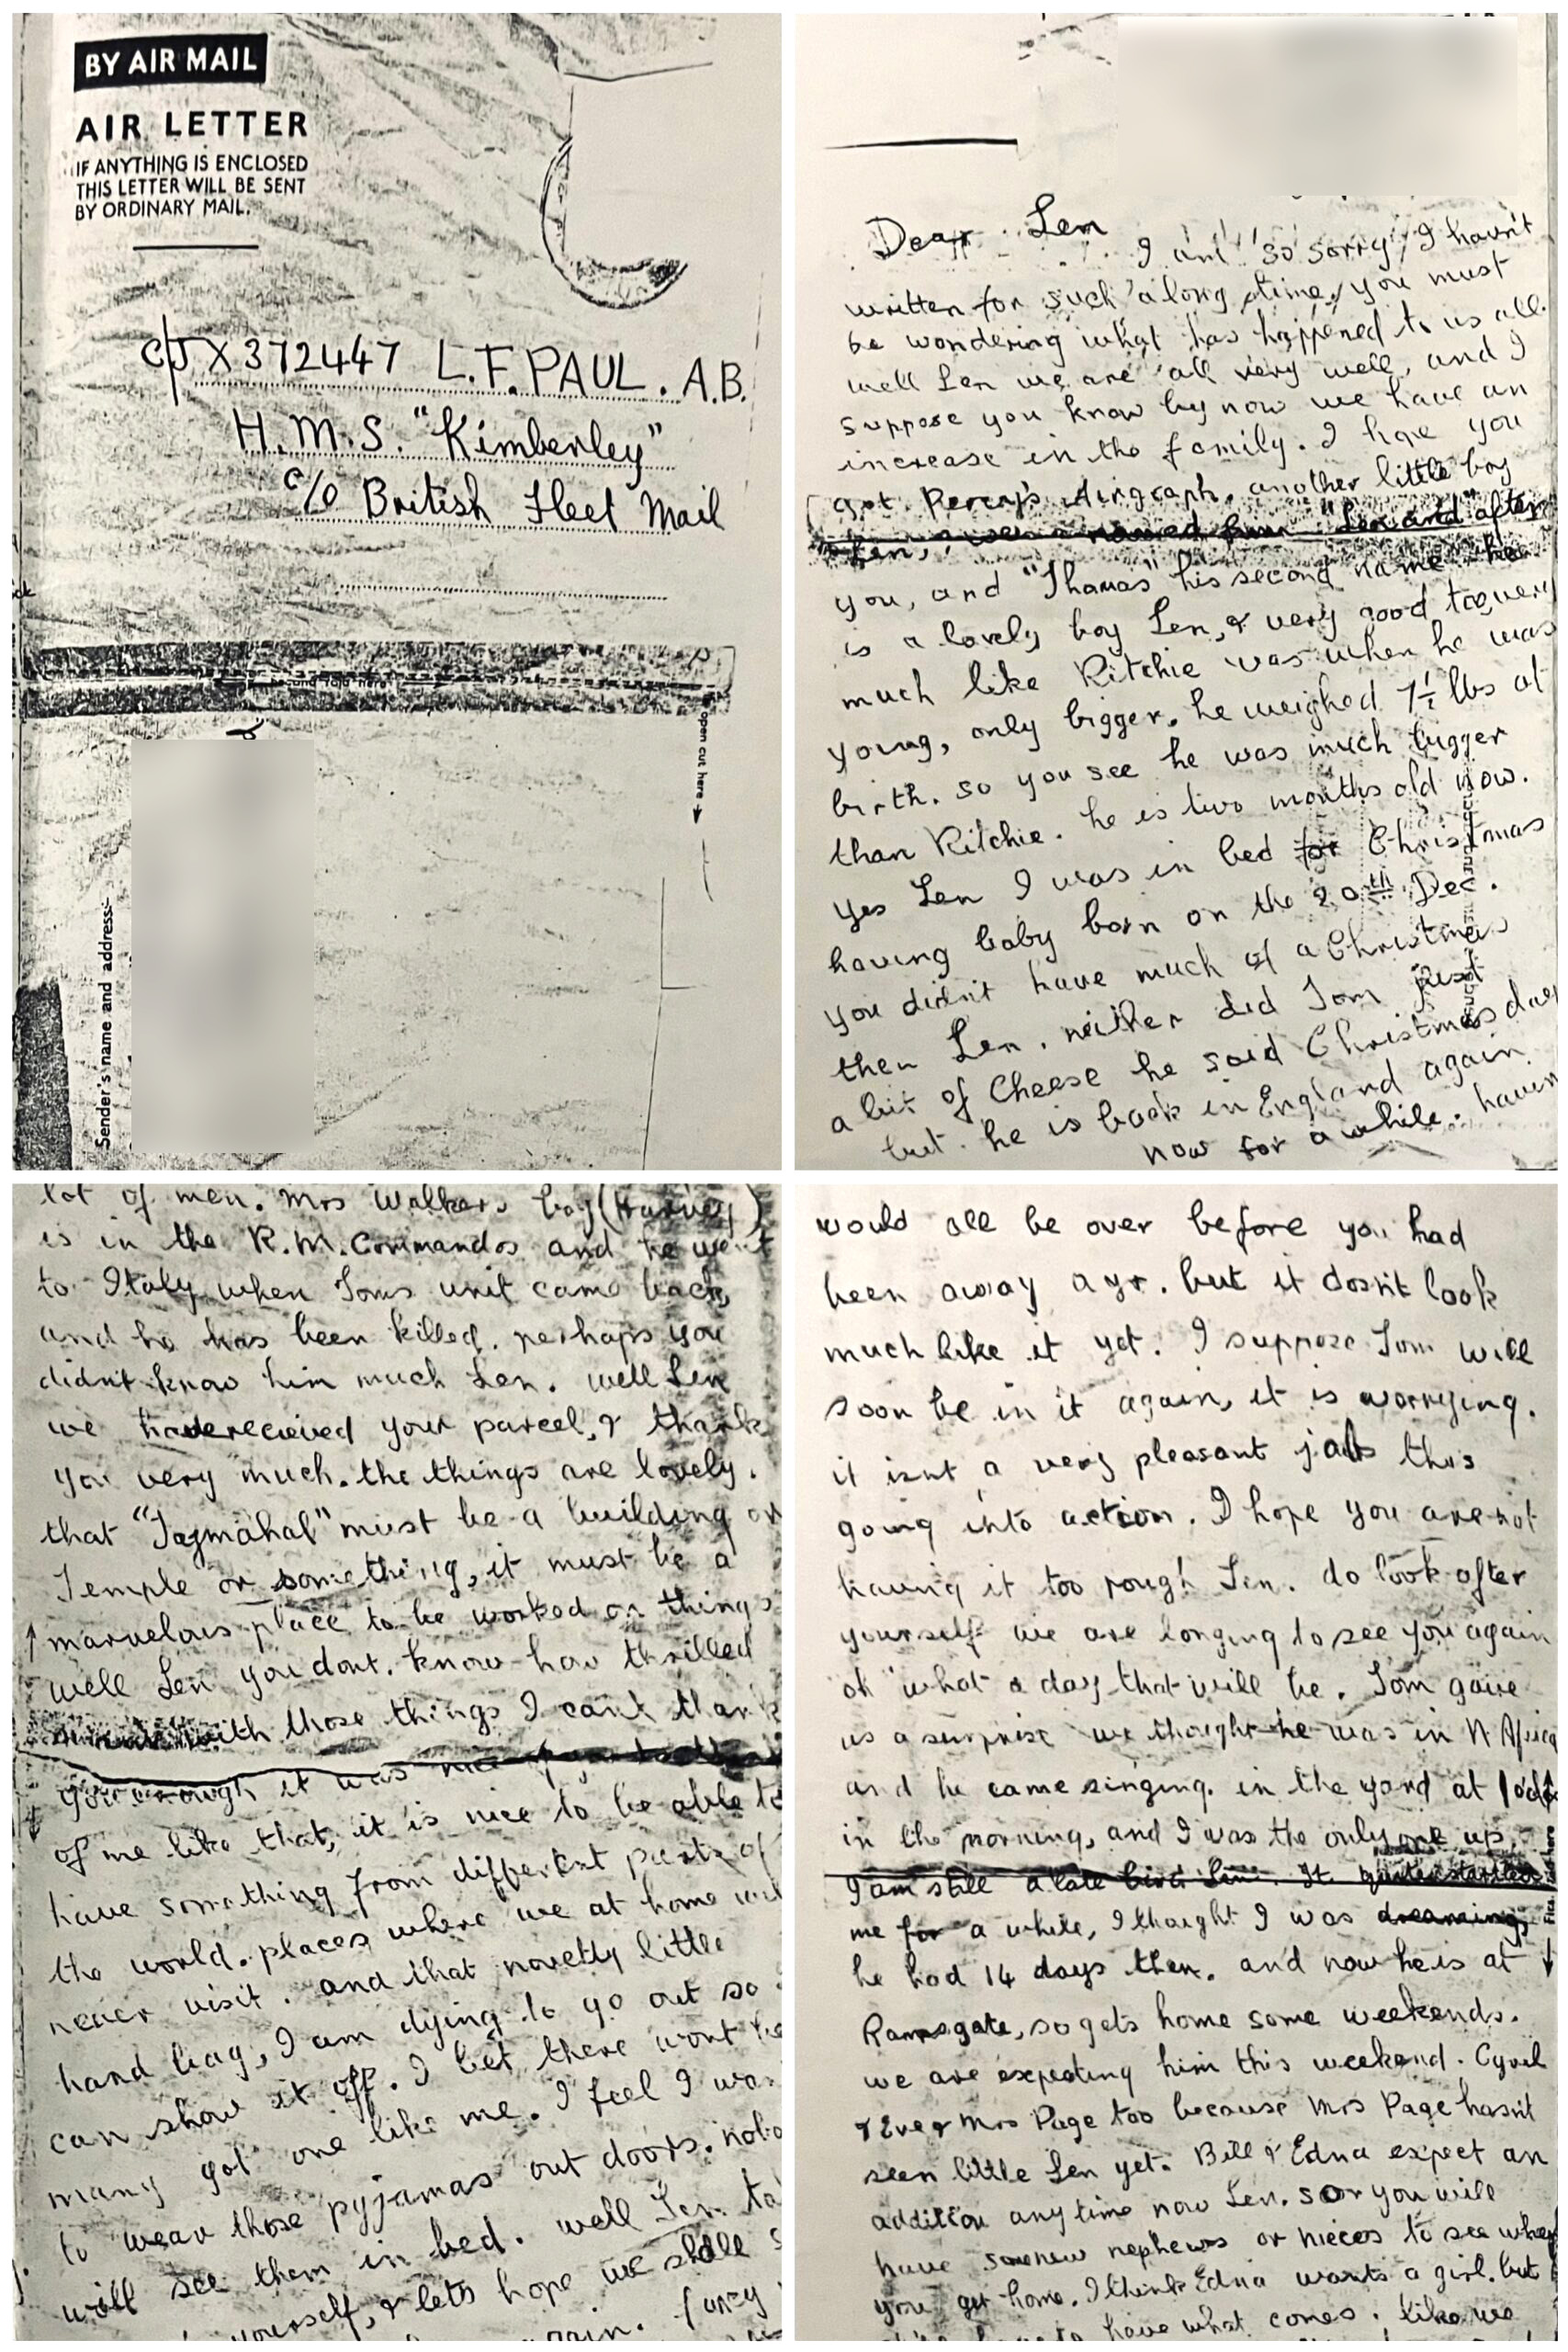 BY AIR MAIL
AIR LETTER
IF ANYTHING IS ENCLOSED
THIS LETTER WILL BE SENT
BY ORDINARY MAIL.
C/JX372447 L.F. PAUL. A.B.
H.M.S. "Kimberley"
c/o British Fleet Mail
open cut here
Sender's name and address:-
Dear Len
I am so sorry I havn't
written for such a long time, you must
be wondering what has happened to us all.
well Len we are all very well, and I
suppose you know by now we have an
increase in the family. I hope you
got Percy's Airgraph. another little boy
Len, named him "Len and after
you, and "Thomas" his second name he
is a lovely boy Len, & very good too, very
much like Ritchie was when he was
young, only bigger. he weighed 7½ lbs at
birth. so you see he was much bigger
than Ritchie. he is two months old now.
yes Len I was in bed for Christmas
having baby born on the 20th Dec.
you didn't have much of a Christmas
then Len. neither did Tom just
a bit of Cheese he said Christmas day
but he is back in England again
now for a while. havin
lot of men. Mrs Walkers boy (Harvey)
is in the R.M. Commandos and he went
to Italy when Toms unit came back,
and he has been killed. perhaps you
didn't know him much Len. well Len
we have recieved your parcel, & thank
you very much. the things are lovely.
that "Tajmahal" must be a building or
Temple or something, it must be a
marvelous place to be worked on things
well Len you dont. know how thrilled
with those things I can't thank
you enough it was nice of you to
of me like that, it is nice to be able to
have something from different parts of
the world. places where we at home will
never visit. and that novelty little
hand bag, I am dying to go out so
can show it off. I bet there wont be
many got one like me. I feel I wan
to wear those pyjamas out doors. nobo
will see them in bed. well Len ta
yourself, & lets hope we shall s
again.
would all be over before you had
been away a yr. but it dosn't look
much like it yet. I suppose Tom will
soon be in it again, it is worrying.
it isnt a very pleasant job this
going into action. I hope you are not
having it too rough Len. do look after
yourself we are longing to see you again
oh what a day that will be. Tom gave
us a surprise we thought he was in N Africa
and he came singing. in the yard at 1 o'clock
in the morning, and I was the only one up,
I am still a late bird Len. It quite startled
me for a while, I thought I was dreaming,
he had 14 days then. and now he is at
Ramsgate, so gets home some weekends.
we are expecting him this weekend. Cyril
& Eve & Mrs Page too because Mrs Page hasn't
seen little Len yet. Bill & Edna expect an
addition any time now Len. so you will
have some new nephews or nieces to see when
you get home. I think Edna wants a girl. but
have what comes. like we